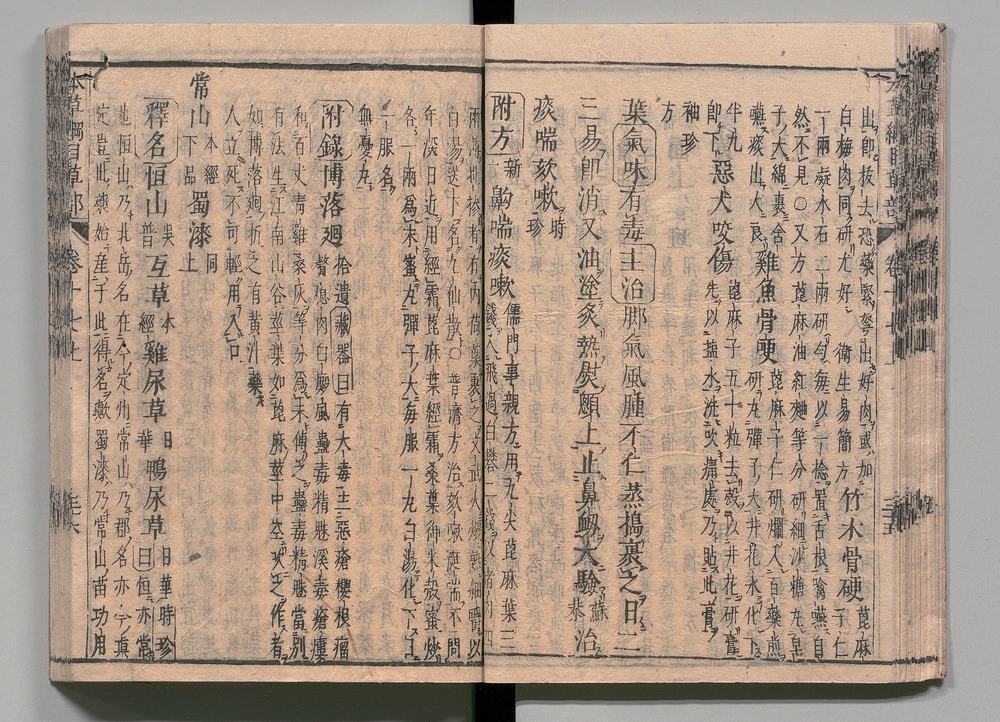 出即拔去恐藥緊弩出好肉或加
白梅肉同研尤好 衛生易簡方 竹木骨硬 蓖麻子仁
一兩凝水石二兩研勻每以一捻置舌根噙嚥自
然不見○又方蓖麻油紅麯等分研細沙糖丸皂
子大綿裹含嚥痰出大良 雞魚骨硬 蓖麻子仁研爛入百藥煎
研丸彈子大井花水化下
半丸即下 惡犬咬傷 蓖麻子五十粒去殼以井花研膏
先以鹽水洗吹痛處乃貼此膏
袖珍方
葉氣味有毒主治脚氣風腫不仁蒸搗裹之日二
三易即消又油塗炙熱熨顖上止鼻衂大驗 蘇恭 治
痰喘欬嗽 時珍
附方 新一 齁喘痰嗽 儒門事親方用九尖蓖麻葉三
錢入飛過白礬二錢以猪肉四
兩薄批摻藥在內荷葉裹之文武火煨熟細嚼以
白湯送下名九仙散○普濟方治欬嗽涎喘不問
年深日近用經霜蓖麻葉經霜桑葉御米殼蜜炒
各一兩為末蜜丸彈子大每服一丸白湯化下日
一服名
無憂丸
附錄博落廻 拾遺 藏器曰有大毒主惡瘡癭根瘤
贅瘜肉白癜風蠱毒精魅溪毒瘡瘻
和百丈青雞桑灰等分為末傅之蠱毒精魅當別
有法生江南山谷莖葉如蓖麻莖中空吹之作聲
如博落廻折之有黃汁藥
人立死不可輕用入口
常山 本經下品 蜀漆 同上
釋名恒山 吳普 互草 本經 雞尿草 日華 鴨尿草 日華 時珍
曰恒亦常
也恒山乃北岳名在今定州常山乃郡名亦今真
定豈此藥始産于此得名歟蜀漆乃常山苗功用
本草綱目草部 卷十七上